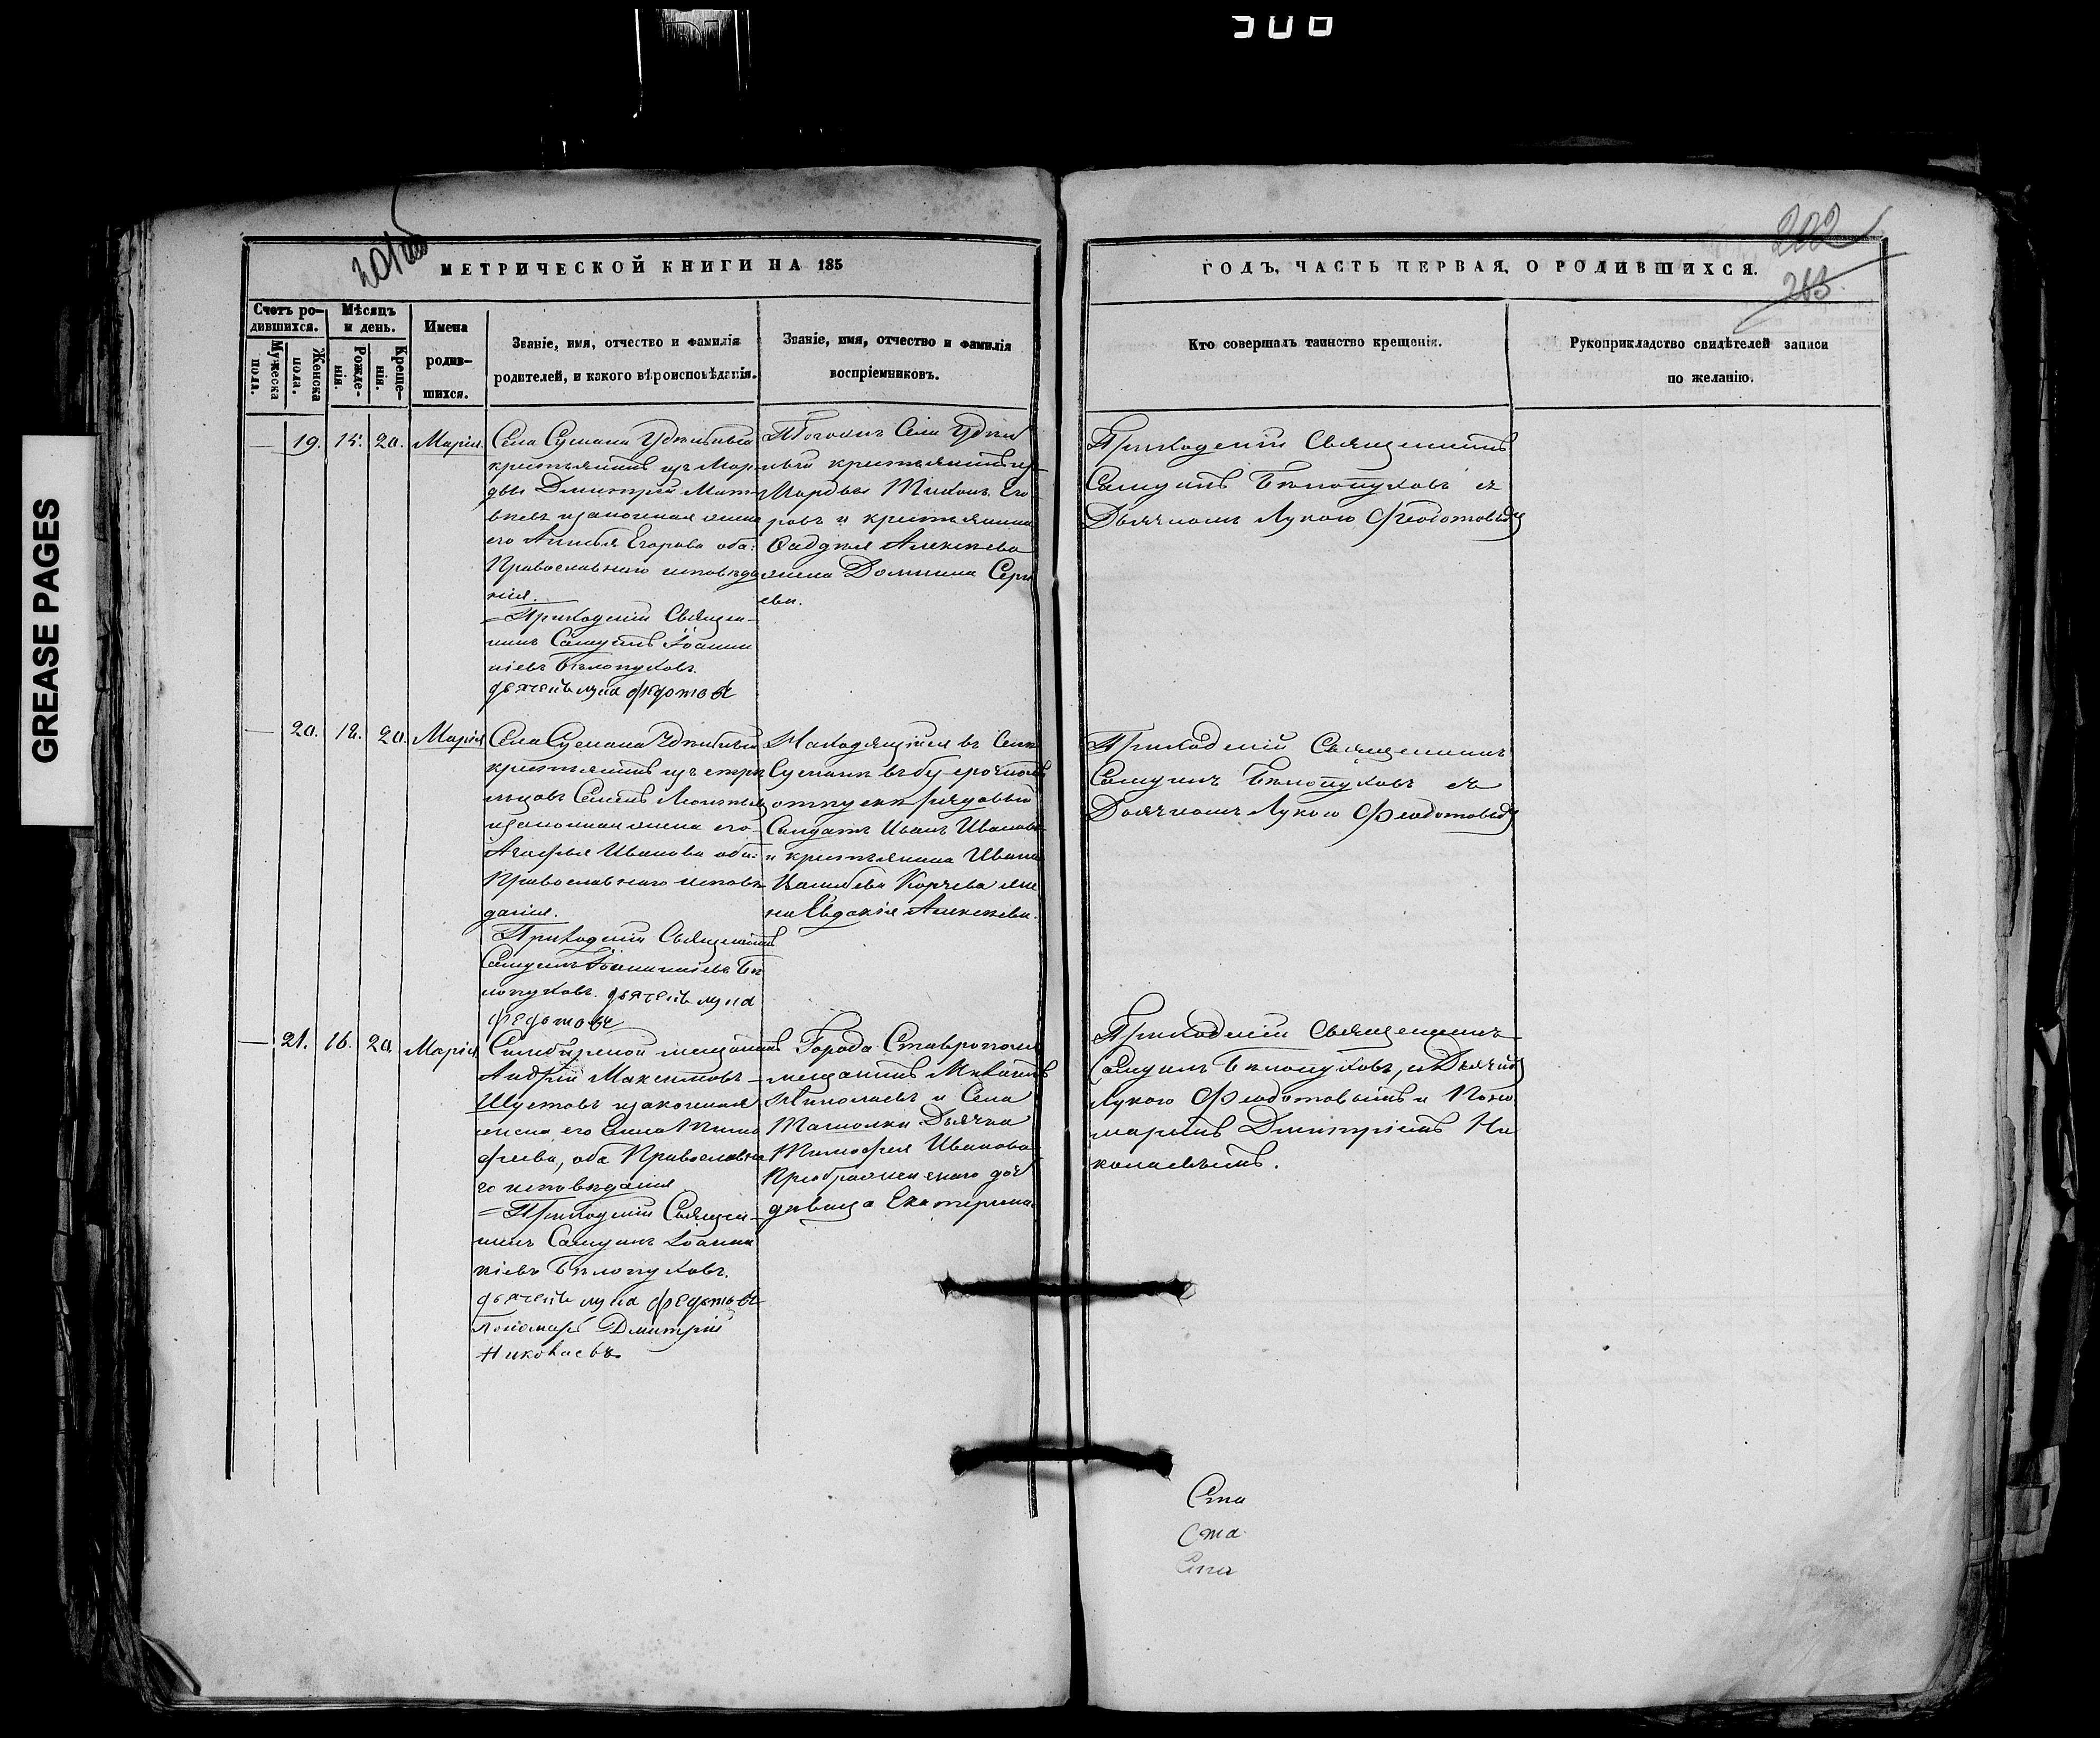 308
202
203
МЕТРИЧЕСКОЙ КНИГИ НА 185
ГОДЪ, ЧАСТЬ ПЕРВАЯ, О РОДИВШИХСЯ.
GREASE PAGES
Счетъ ро-
дившихся.
Мужеска
пола.
Женска
пола.
Мѣсяцъ
и день.
Рожде-
нія.
Креще-
нія.
Имена
родив-
шихся.
Званіе, имя, отчество и фамилія
родителей, и какого вѣроисповѣданія.
Званіе, имя, отчество и фамилія
воспріемниковъ.
Кто совершалъ таинство крещенія.
Рукоприкладство свидѣтелей записи
по желанію.
19. 15. 20. Марія
Села Сускана Удѣльный
крестьянинъ изъ Мор-
двы Дмитрій Мат-
вѣевъ изаконная жена
его Анисья Егорова оба
Православнаго исповѣда
нія.
Приходскій Священ-
никъ Самуилъ Іоанни
кіевъ Бѣлопуховъ.
дьячекъ лука федотовъ
Тогожъ Села Удѣль
ный крестьянинъ из
Мордвы Тихонъ Его
ровъ и крестьянина
Фаддея Алексѣева
жена Домника Серге
ева.
Приходскій Священникъ
Самуилъ Бѣлопуховъ съ
Дьячкомъ Лукою Феодотовымъ
20. 18. 20. Марія
Села Сускана Удѣльный
крестьянинъ изъ
Семенъ Леонтьевъ
изаконная жена его
Агафья Иванова оба
Православнаго исповѣ
данія.
Приходскій Священникъ
Самуилъ Іоанникіевъ Бѣ
лопуховъ. дьячекъ лука
федотовъ
Находящійся въ Селѣ
Сусканѣ въ безсрочномъ
отпуску рядовый
Солдатъ Иванъ Ивановъ
и крестьянина Ивана
Корчева же
на Евдокія Алексѣева.
Приходскій Священникъ
Самуилъ Бѣлопуховъ съ
Дьячкомъ Лукою Феодотовымъ
21. 16. 20. Марія
Симбирской мещанинъ
Андрей Максимовъ
Шустовъ изаконная
жена его Елена Тимо
феева, оба Православна
го исповѣданія
Приходскій Священ-
никъ Самуилъ Іоанни
кіевъ Бѣлопуховъ.
дьячекъ лука федотовъ
Пономарь Дмитрій
Николаевъ.
Города Ставрополя
мещанинъ Михаилъ
Николаевъ и Села
Ташолки Дьячка
Тимофея Иванова
Преображенскаго доч
дѣвица Екатерина.
Приходскій Священникъ
Самуилъ Бѣлопуховъ, съ Дьячкомъ
Лукою Феодотовымъ и Поно
маремъ Дмитріемъ Ни
колаевымъ.
Ста
Ста
Ста